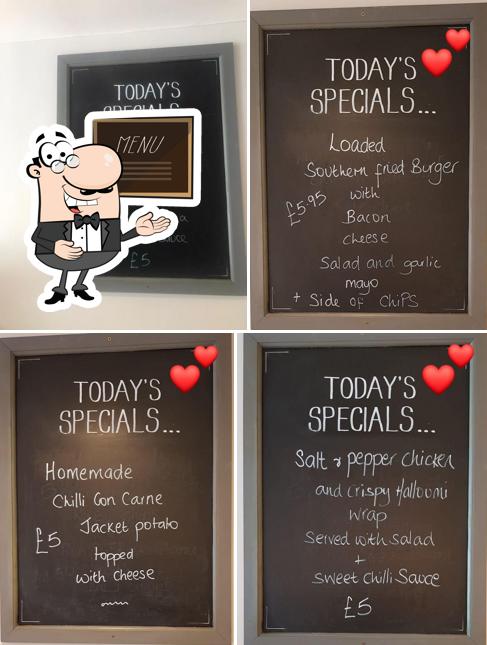 TODAY'S
SPECIALS
MENU
£5
TODAY'S
SPECIALS...
Loaded
Southern fried Burger
with
£5.95
Bacon
cheese
Salad and garlic
mayo
+ Side of ChiPS
TODAY'S
SPECIALS...
Homemade
Chilli Con Carne
£5
Jacket potato
topped
with cheese
TODAY'S
SPECIALS...
Salt & pepper Chicken
and crispy Halloumi
wrap
Served with salad
+
sweet chilli Sauce
£5